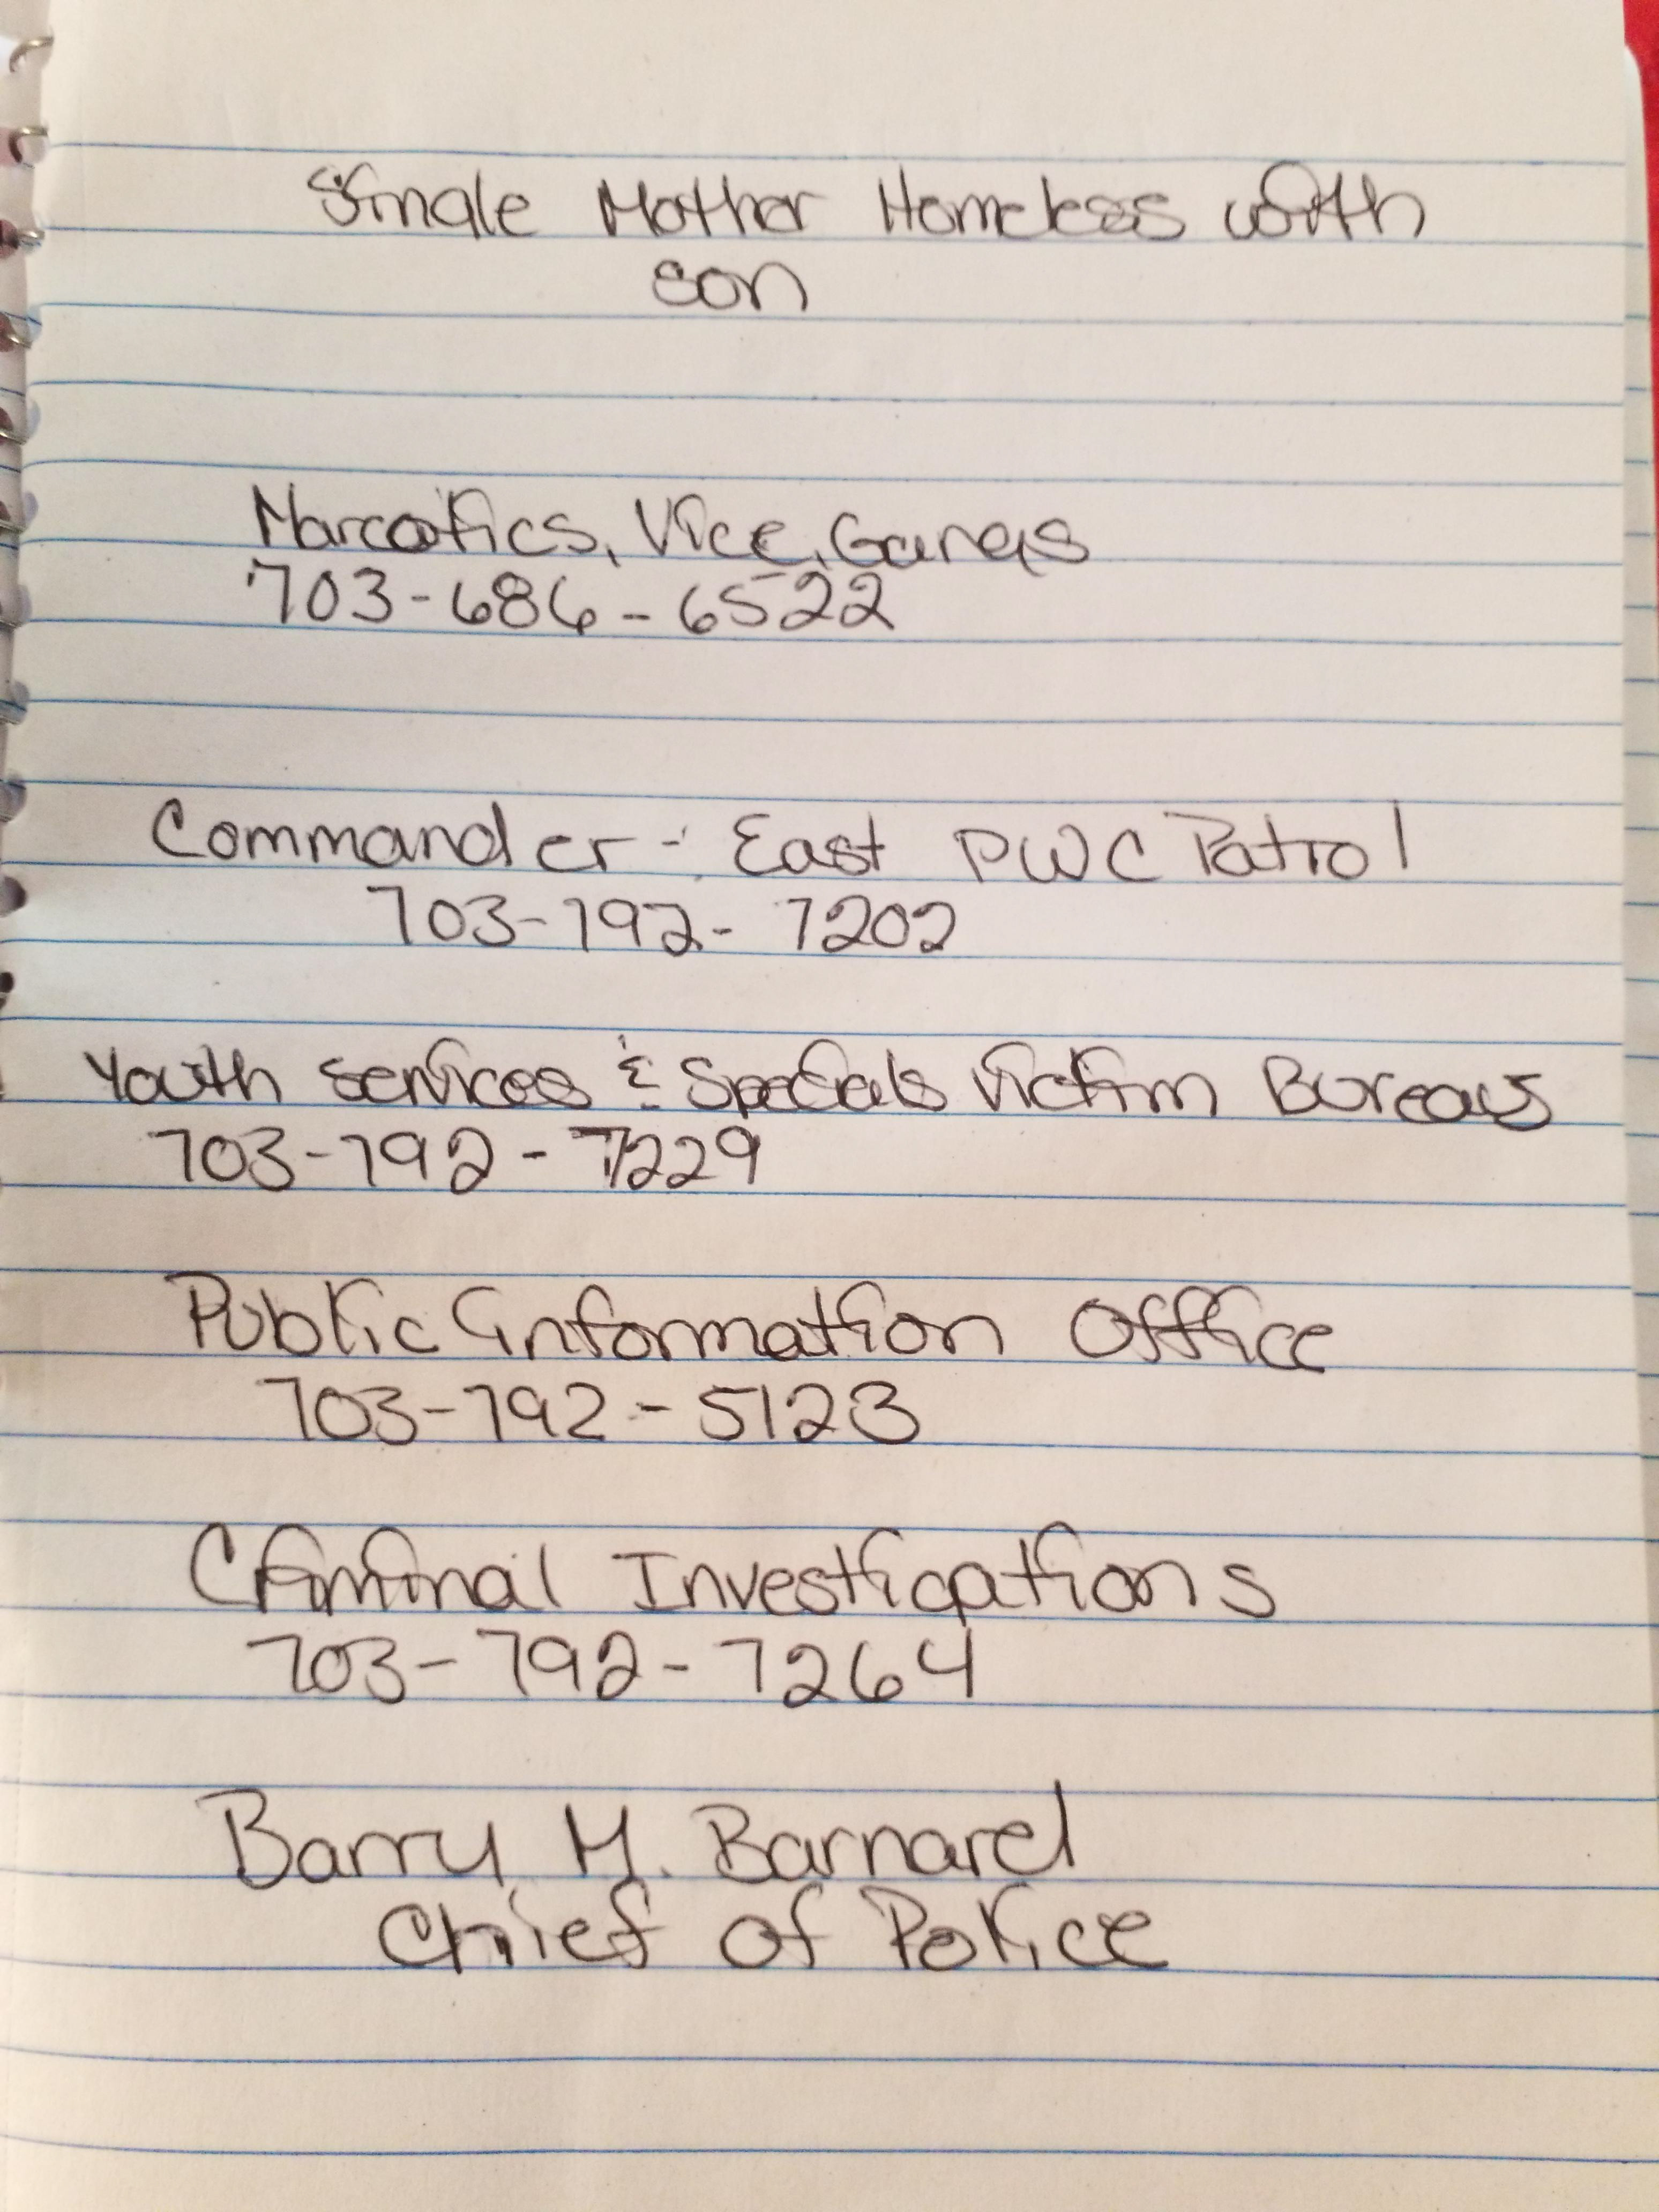 Single Mother Homeless with
son
Narcotics, Vice, Gangs
703-686-6522
Commander - East PWC Patrol
703-792-7202
Youth Services & Specials Victim Bureaus
703-792-7229
Public Information Office
703-792-5123
Criminal Investigations
703-792-7264
Barry M. Barnard
Chief of Police